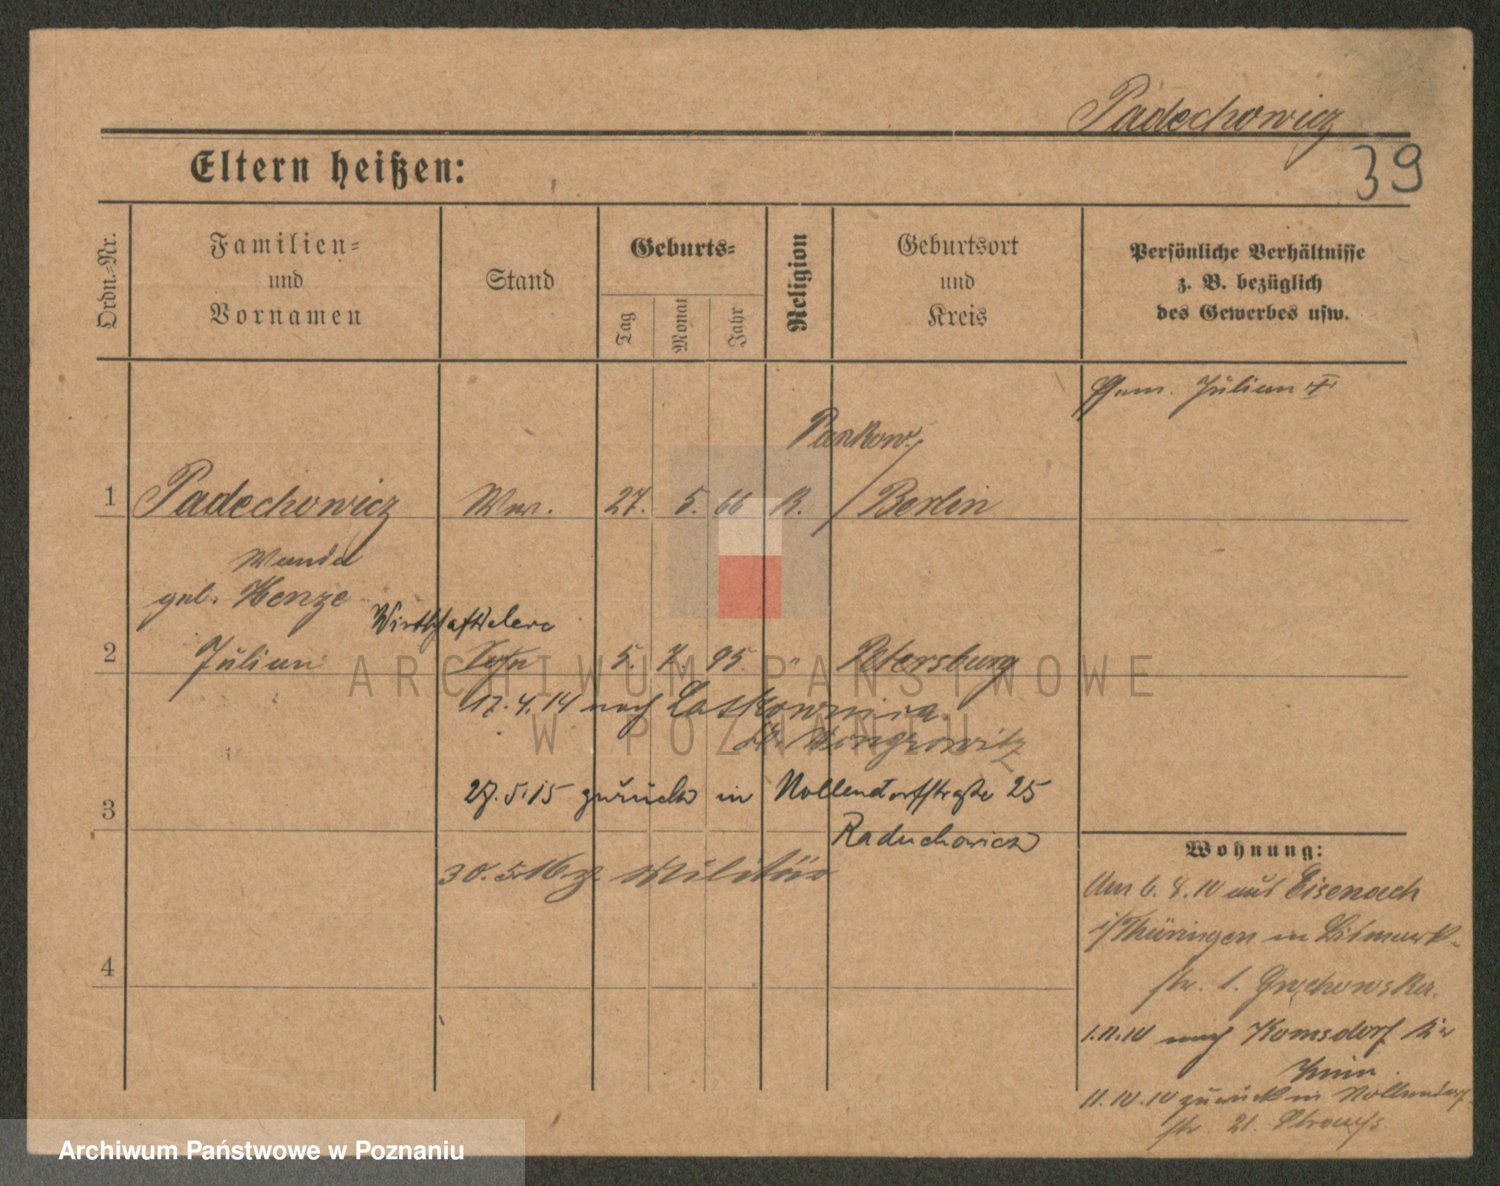 Padechowicz
39
Eltern heißen:
Ordn.-Nr.
Familien-
und
Vornamen
Stand
Geburts-
Tag
Monat
Jahr
Religion
Geburtsort
und
Kreis
Persönliche Verhältnisse
z. B. bezüglich
des Gewerbes usw.
Julian
Pankow
1 Padechowicz Ww. 27. 5. 66 R. / Berlin
Wanda
geb. Henze
Wirthschaftseleve
2 Julian Sohn 5. 7. 95. " Petersburg
17. 4. 14 nach Laskownica
Kr. Wongrowitz
27. 5. 15 zurück in Nollendorfstraße 25
3
Raduchowicz
30. 5. 16 z. Militär
4
Wohnung:
Am 6. 8. 10 aus Eisenach
i/Thüringen in Bismark-
str. 1. Grochowska.
1. 11. 10 nach Komsdorf Kr
Znin.
11. 10. 10 zurück in Nollendorf
str. 21.
ARCHIWUM PAŃSTWOWE
W POZNANIU
Archiwum Państwowe w Poznaniu